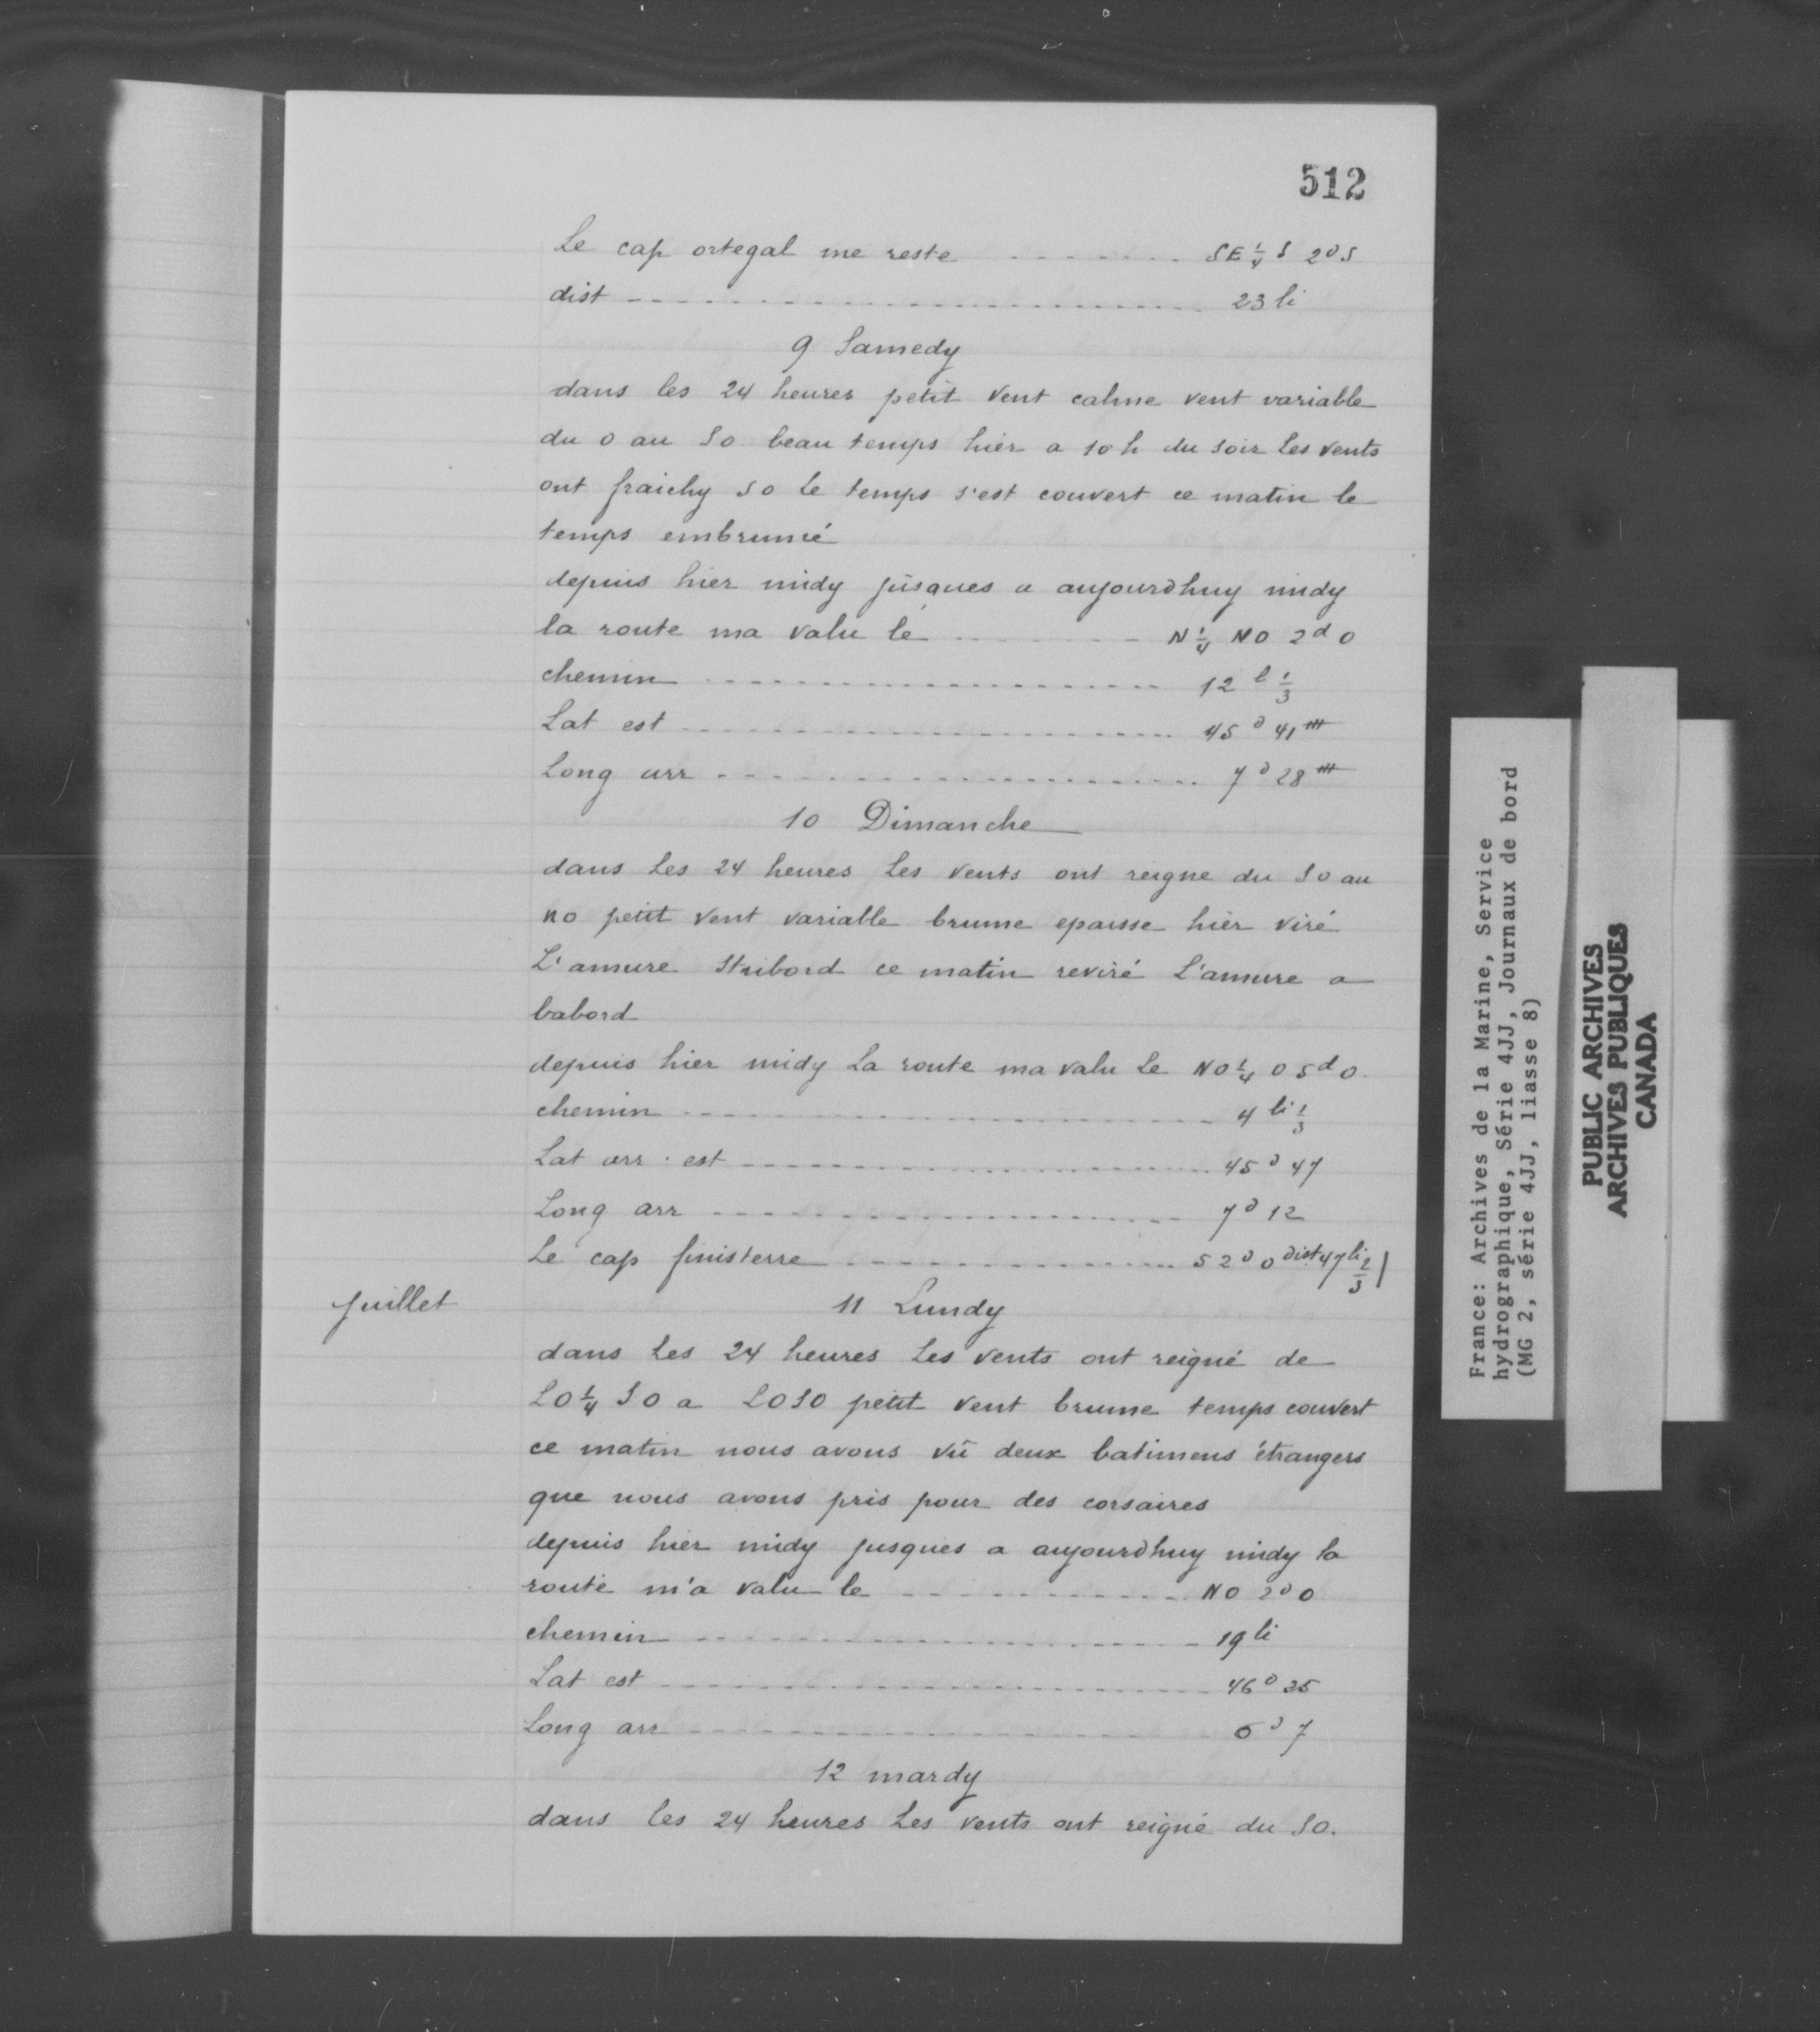 512
Le cap ortegal me reste -------- SE 1/4 S 2d S
dist ------------------------ 23 li
9 Samedy
dans les 24 heures petit vent calme vent variable
du O au SO beau temps hier a 10 h du soir les vents
ont fraichy SO le temps s'est couvert ce matin le
temps embrumé
depuis hier midy jusques a aujourdhuy midy
la route ma valu le -------- N 1/4 NO 2d O
chemin -------------------- 12 l 1/3
Lat est -------------------- 45d 41m
Long arr -------------------- 7d 28m
10 Dimanche
dans les 24 heures les vents ont reigne du SO au
no petit vent variable brume epaisse hier viré
L'amure Stribord ce matin reviré L'amure a
babord
depuis hier midy La route ma valu Le NO 1/4 O 5d O.
chemin -------------------- 4 li 1/3
Lat arr : est -------------------- 45d 47
Long arr -------------------- 7d 12
Le cap finisterre -------------- S 2d O dist 47 li 2/3
juillet
11 Lundy
dans les 24 heures les vents ont reigné de
LO 1/4 SO a LOSO petit vent brume temps couvert
ce matin nous avons vû deux batimens étrangers
que nous avons pris pour des corsaires
depuis hier midy jusques a aujourdhuy midy la
route m'a valu le ------------ NO 2d O
chemin -------------------- 19 li
Lat est -------------------- 46d 35
Long arr -------------------- 6d 7
12 mardy
dans les 24 heures les vents ont reigné du SO.
France: Archives de la Marine, Service
hydrographique, Série 4JJ, Journaux de bord
(MG 2, série 4JJ, liasse 8)
PUBLIC ARCHIVES
ARCHIVES PUBLIQUES
CANADA